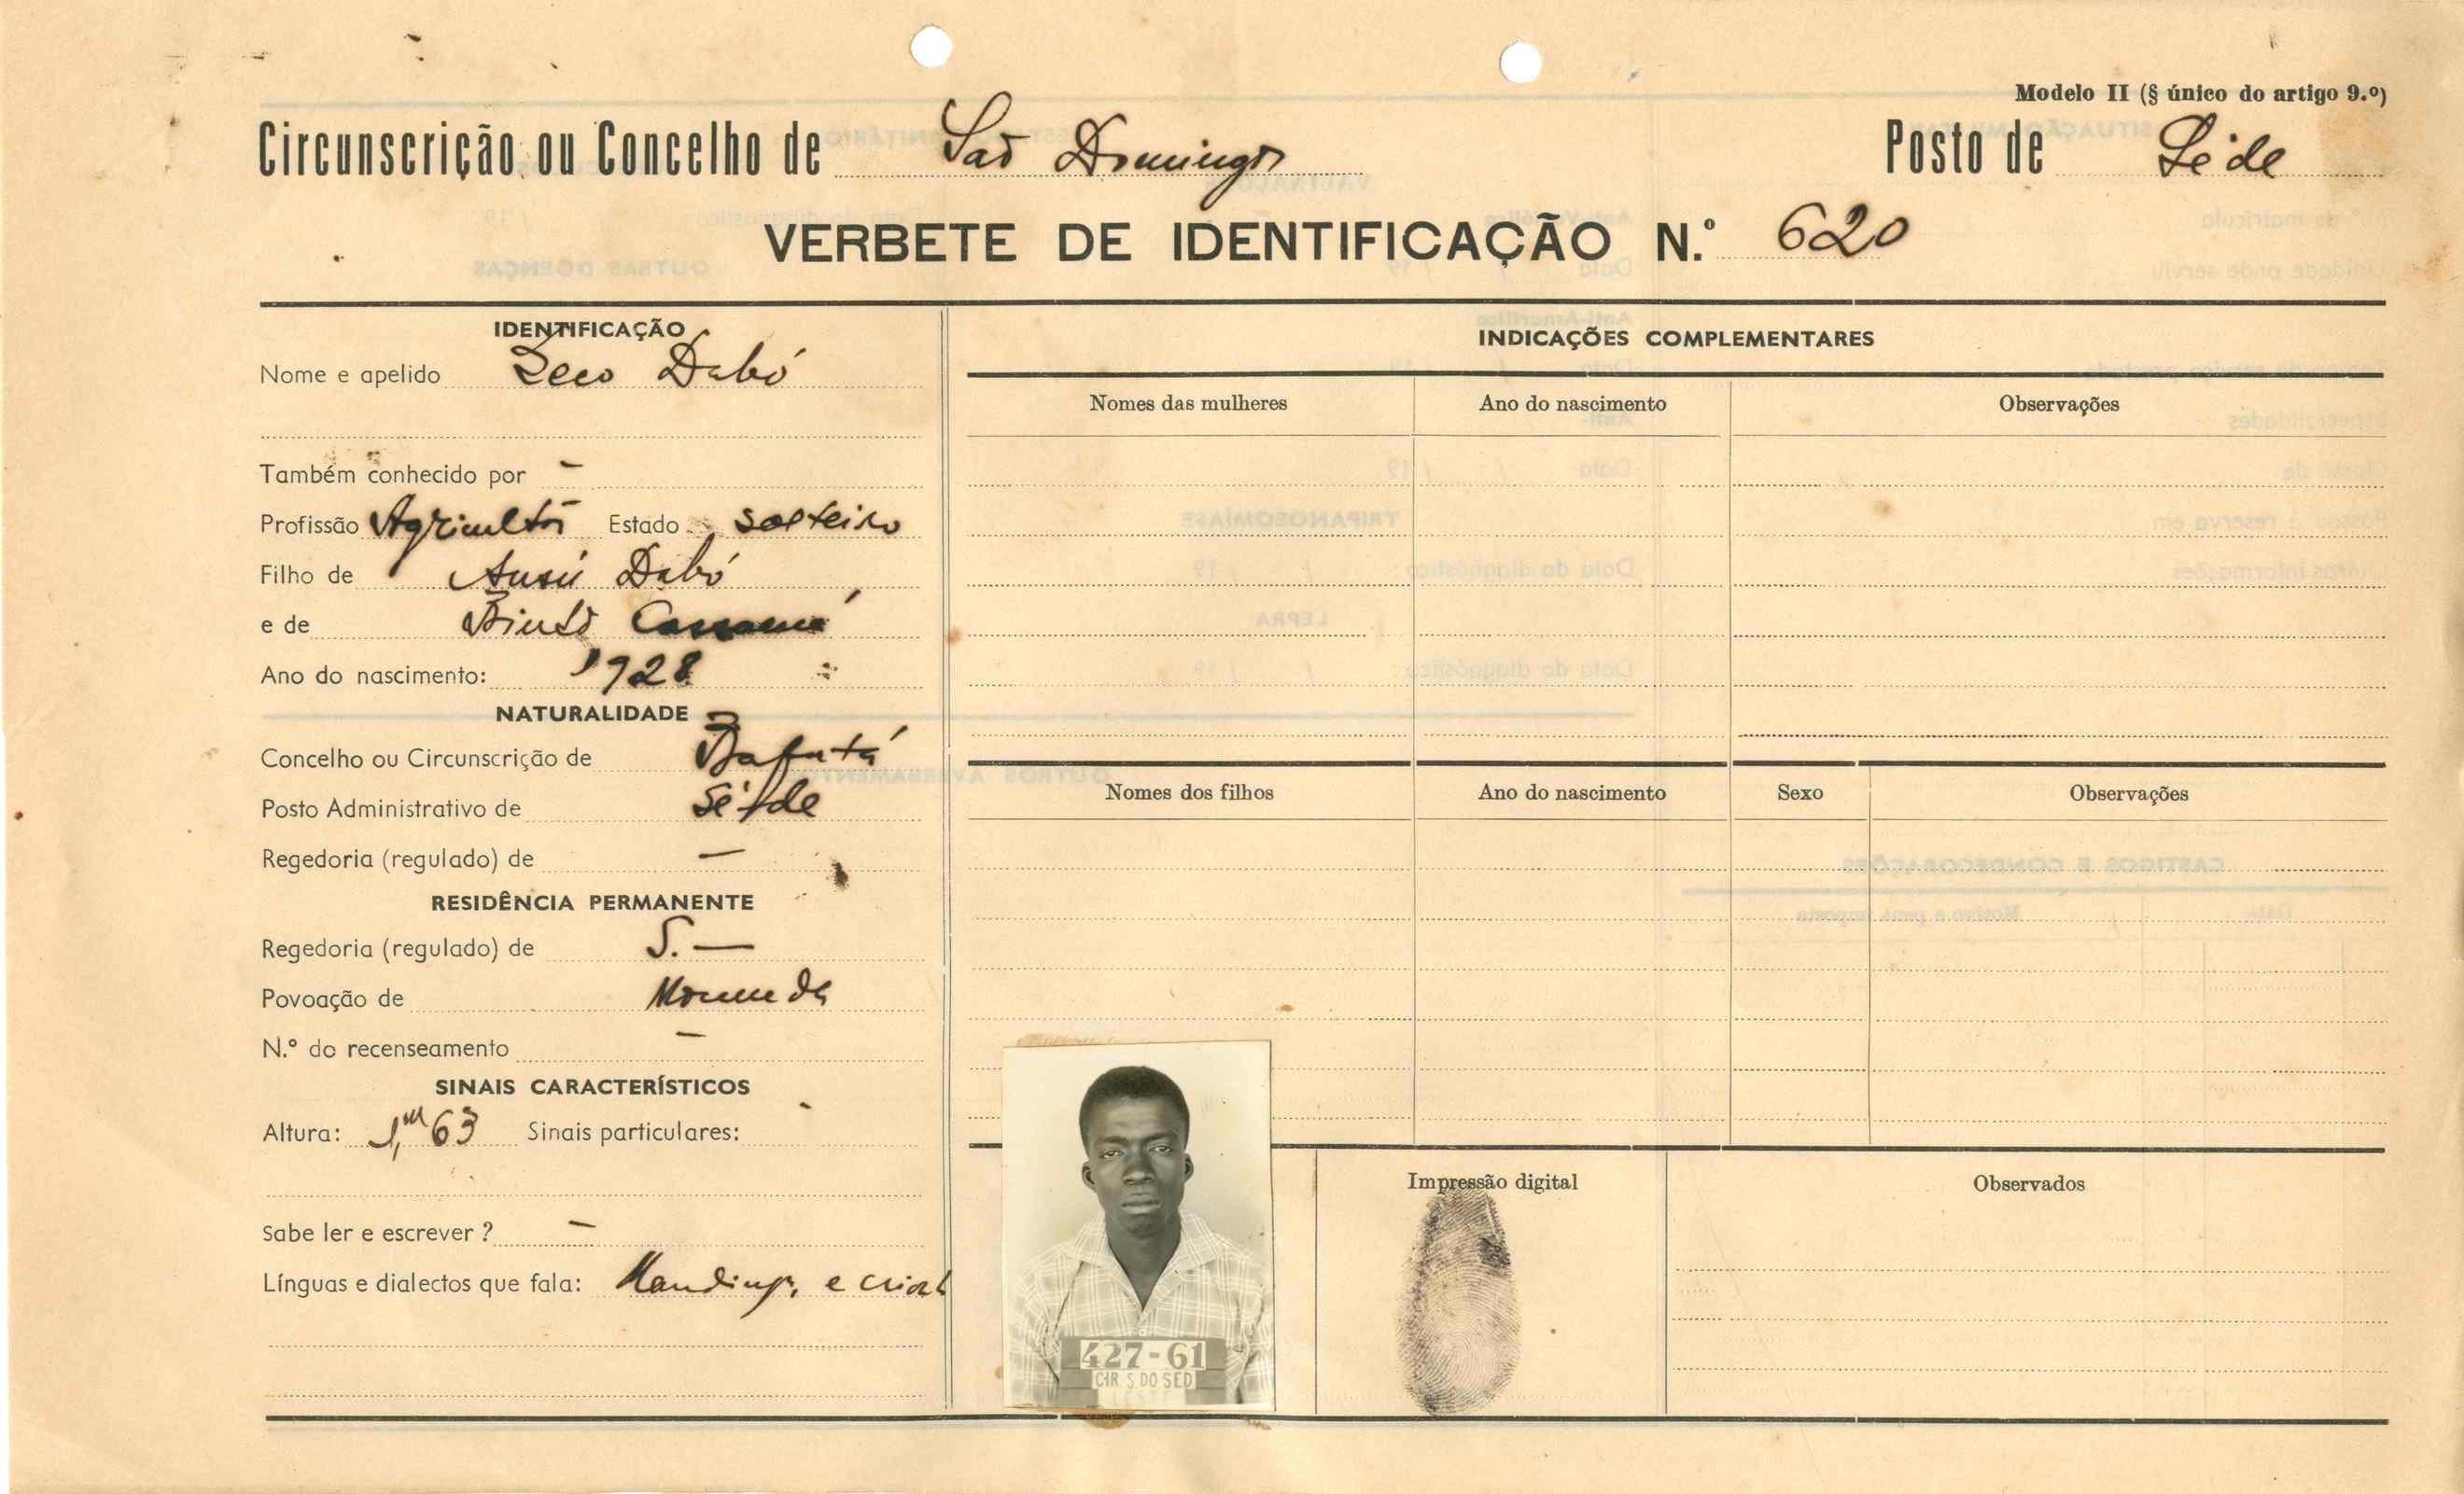 Modelo II (§ único do artigo 9.º)
Circunscrição ou Concelho de São Domingos Posto de Séde
VERBETE DE IDENTIFICAÇÃO N.º 620
IDENTIFICAÇÃO
Nome e apelido Seco Dabó
Também conhecido por —
Profissão Agricultor Estado solteiro
Filho de Ansú Dabó
e de Binto Cassamá
Ano do nascimento: 1928
NATURALIDADE
Concelho ou Circunscrição de Bafatá
Posto Administrativo de Séde
Regedoria (regulado) de —
RESIDÊNCIA PERMANENTE
Regedoria (regulado) de S. —
Povoação de
N.º do recenseamento —
SINAIS CARACTERÍSTICOS
Altura: 1,m63 Sinais particulares:
Sabe ler e escrever ? —
Línguas e dialectos que fala: Mandinga e
INDICAÇÕES COMPLEMENTARES
Nomes das mulheres Ano do nascimento Observações
Nomes dos filhos Ano do nascimento Sexo Observações
427-61
CIR S DO SED
Impressão digital
Observados